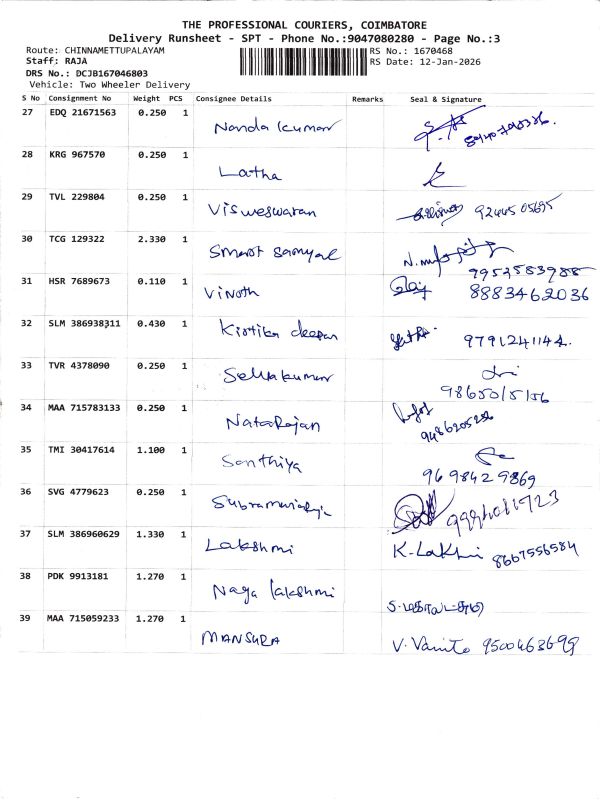 THE PROFESSIONAL COURIERS, COIMBATORE
Delivery Runsheet - SPT - Phone No.:9047080280 - Page No.:3
Route: CHINNAMETTUPALAYAM RS No.: 1670468
Staff: RAJA RS Date: 12-Jan-2026
DRS No.: DCJB167046803
Vehicle: Two Wheeler Delivery
S No Consignment No Weight PCS Consignee Details Remarks Seal & Signature
27 EDQ 21671563 0.250 1 Nanda kumar
28 KRG 967570 0.250 1 Latha
29 TVL 229804 0.250 1 Visweswaran
30 TCG 129322 2.330 1 Smart samyal 9952583988
31 HSR 7689673 0.110 1 Vinoth 8883462036
32 SLM 386938311 0.430 1 Kirtika deepan 9791241144.
33 TVR 4378090 0.250 1 Selvakumar
34 MAA 715783133 0.250 1 Natarajan 9486205256
35 TMI 30417614 1.100 1 Santhiya 9698429869
36 SVG 4779623 0.250 1
37 SLM 386960629 1.330 1 Lakshmi K. Lakhmi 8667556584
38 PDK 9913181 1.270 1 Naga lakshmi
39 MAA 715059233 1.270 1 MANSURA V. Vanita 9500463699